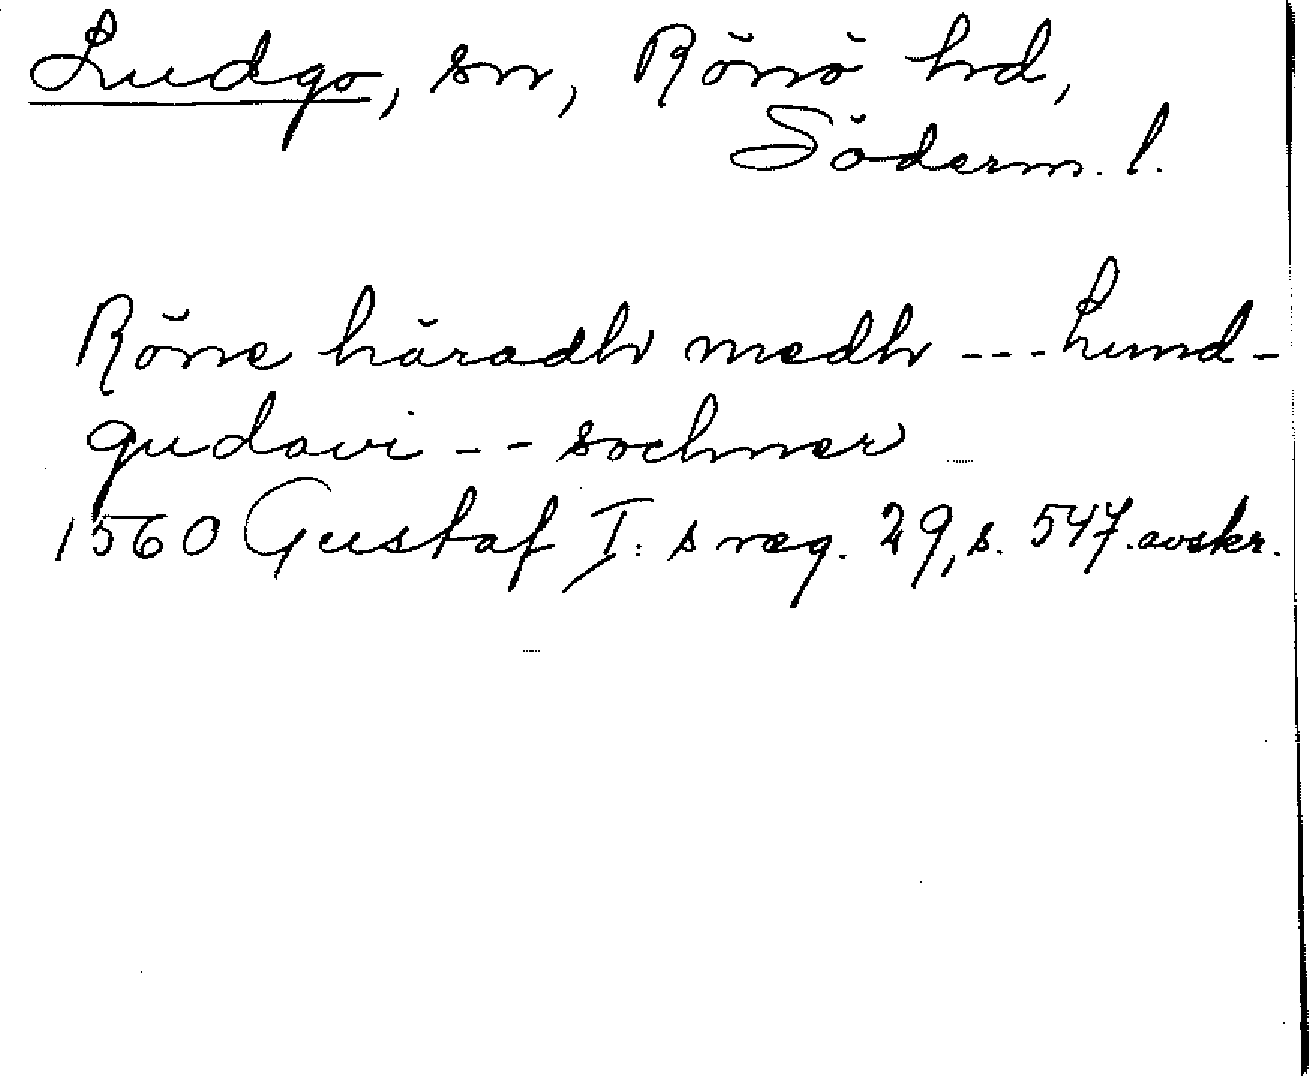 Ludgo, sn, Rönö hd,
Söderm. l.
Röne häradh medh --- Lund-
gudavi -- sochner
1560 Gustaf I:s reg. 29, s. 547. avskr.